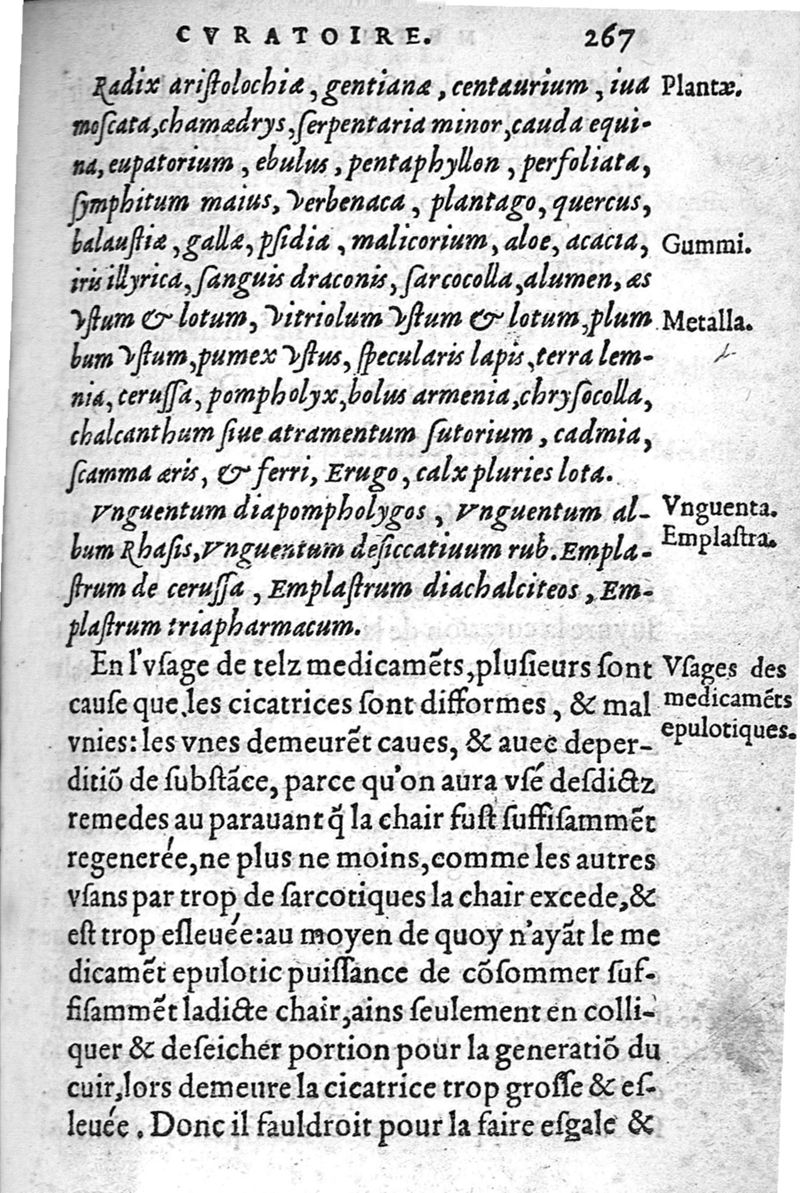 CVRATOIRE. 267
Radix ariſtolochiæ, gentianæ, centaurium, iua Plantæ.
moſcata, chamædrys, ſerpentaria minor, cauda equi-
na, eupatorium, ebulus, pentaphyllon, perfoliata,
ſymphitum maius, Verbenaca, plantago, quercus,
balauſtiæ, gallæ, pſidia, malicorium, aloe, acacia, Gummi.
iris illyrica, ſanguis draconis, ſarcocolla, alumen, æs
Vſtum & lotum, Vitriolum Vſtum & lotum, plum Metalla.
bum Vſtum, pumex Vſtus, ſpecularis lapis, terra lem-
nia, ceruſſa, pompholyx, bolus armenia, chryſocolla,
chalcanthum ſiue atramentum ſutorium, cadmia,
ſcamma æris, & ferri, Erugo, calx pluries lota.
Vnguentum diapompholygos, Vnguentum al- Vnguenta.
bum Rhaſis, Vnguentum deſiccatiuum rub. Empla- Emplaſtra.
ſtrum de ceruſſa, Emplaſtrum diachalciteos, Em-
plaſtrum triapharmacum.
En l'vſage de telz medicamẽts, pluſieurs ſont Vſages des
cauſe que les cicatrices ſont difformes, & mal medicamẽts
vnies: les vnes demeurẽt caues, & auec deper- epulotiques.
ditiõ de ſubſtãce, parce qu'on aura vſé deſdictz
remedes au parauant q̃ la chair fuſt ſuffiſammẽt
regenerée, ne plus ne moins, comme les autres
vſans par trop de ſarcotiques la chair excede, &
eſt trop eſleuée: au moyen de quoy n'ayãt le me
dicamẽt epulotic puiſſance de cõſommer ſuf-
fiſammẽt ladicte chair, ains ſeulement en colli-
quer & deſeicher portion pour la generatiõ du
cuir, lors demeure la cicatrice trop groſſe & eſ-
leuée. Donc il fauldroit pour la faire eſgale &